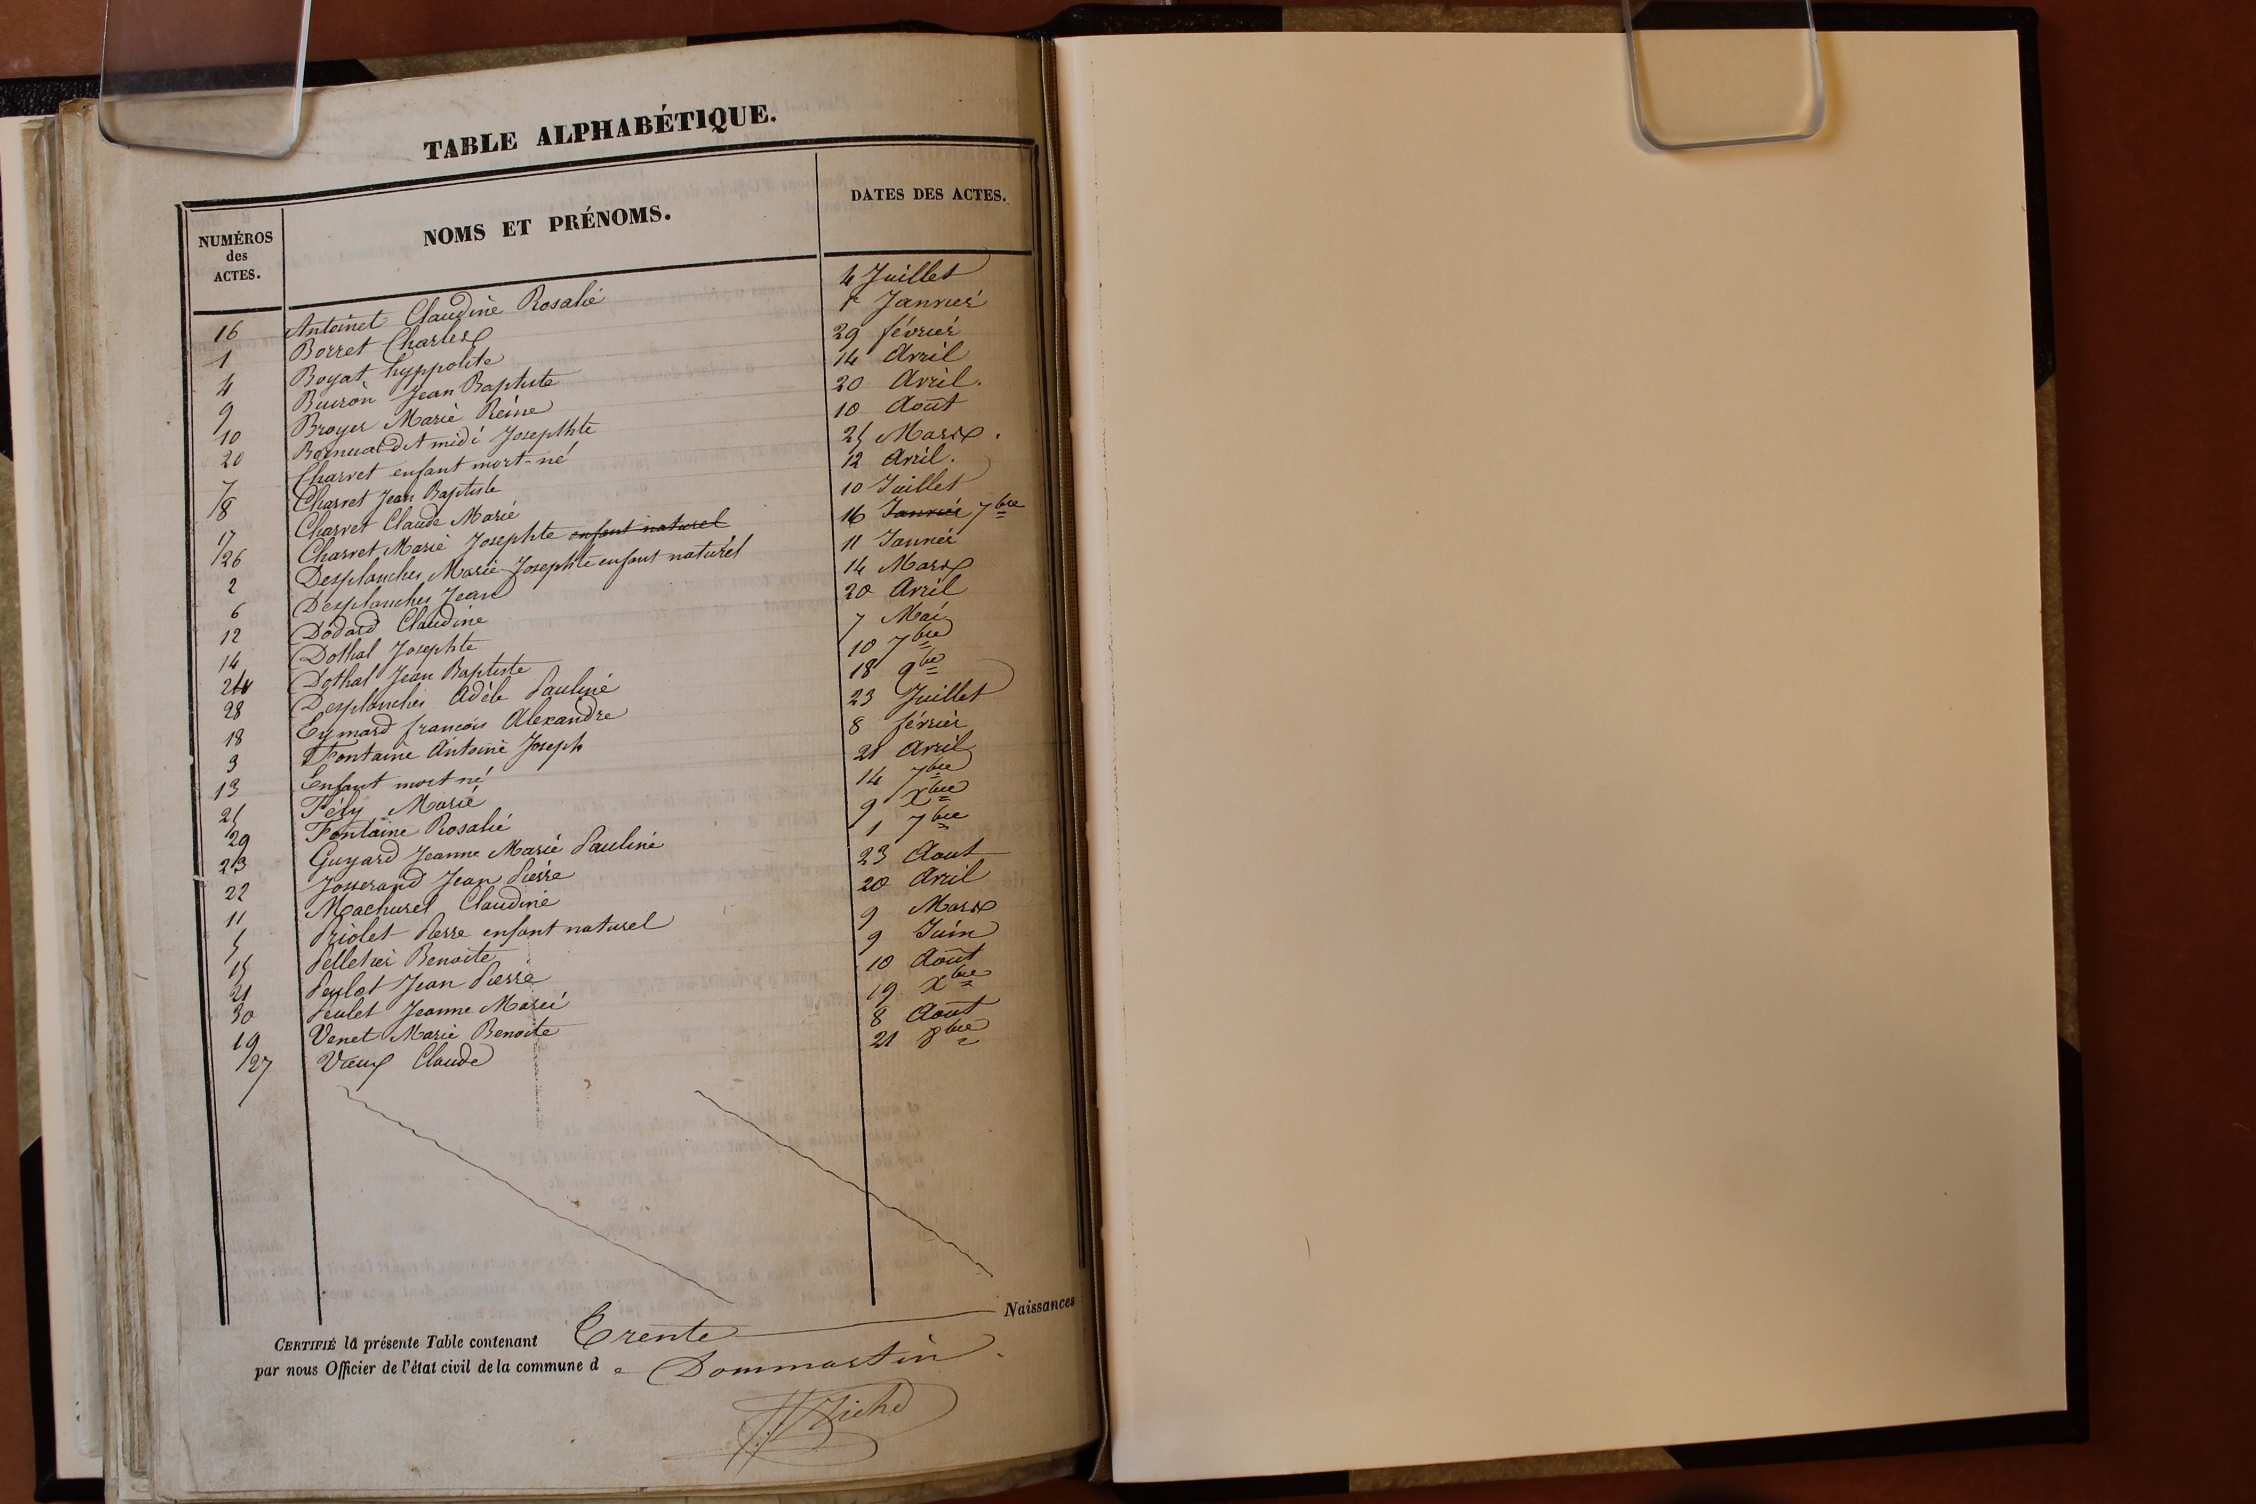 TABLE ALPHABÉTIQUE.
NUMÉROS des ACTES. NOMS ET PRÉNOMS. DATES DES ACTES.
16 Antoinet Claudine Rosalie 4 Juillet
1 Borret Charles Janvier
4 Boyat hyppolite 29 février
9 Buiron Jean Baptiste 14 Avril
10 Broyer Marie Reine 20 Avril.
20 dit midi Josephte 10 Août
7 Charvet enfant mort-né 25 Mars.
8 Charvet Jean Baptiste 12 Avril.
17 Charvet Claude Marie 10 Juillet
26 Charvet Marie Josephte enfant naturel 16 Janvier 7bre
2 Desplanches Marie Josephte enfant naturel 11 Janvier
6 Desplanches Jean 14 Mars
12 Dodard Claudine 20 Avril
14 Dothal Josephte 7 Mai
24 Dothal Jean Baptiste 10 7bre
28 Desplanches Adèle Pauline 18 9bre
18 Eymard françois Alexandre 23 Juillet
3 Fontaine Antoine Joseph 8 février
13 Enfant mort né 21 Avril
25 Fély Marie 14 7bre
29 Fontaine Rosalie 9 Xbre
23 Guyard Jeanne Marie Pauline 1 7bre
22 Josserand Jean Pierre 23 Aout
11 Machurel Claudine 20 Avril
5 Priolet Pierre enfant naturel 9 Mars
15 Pelletier Benoite 9 Juin
21 Peulet Jean Pierre 10 Août
30 Peulet Jeanne Marie 19 Xbre
19 Venet Marie Benoite 8 Août
27 Vieux Claude 21 8bre
CERTIFIÉ la présente Table contenant Trente Naissances
par nous Officier de l'état civil de la commune d e Dommartin.